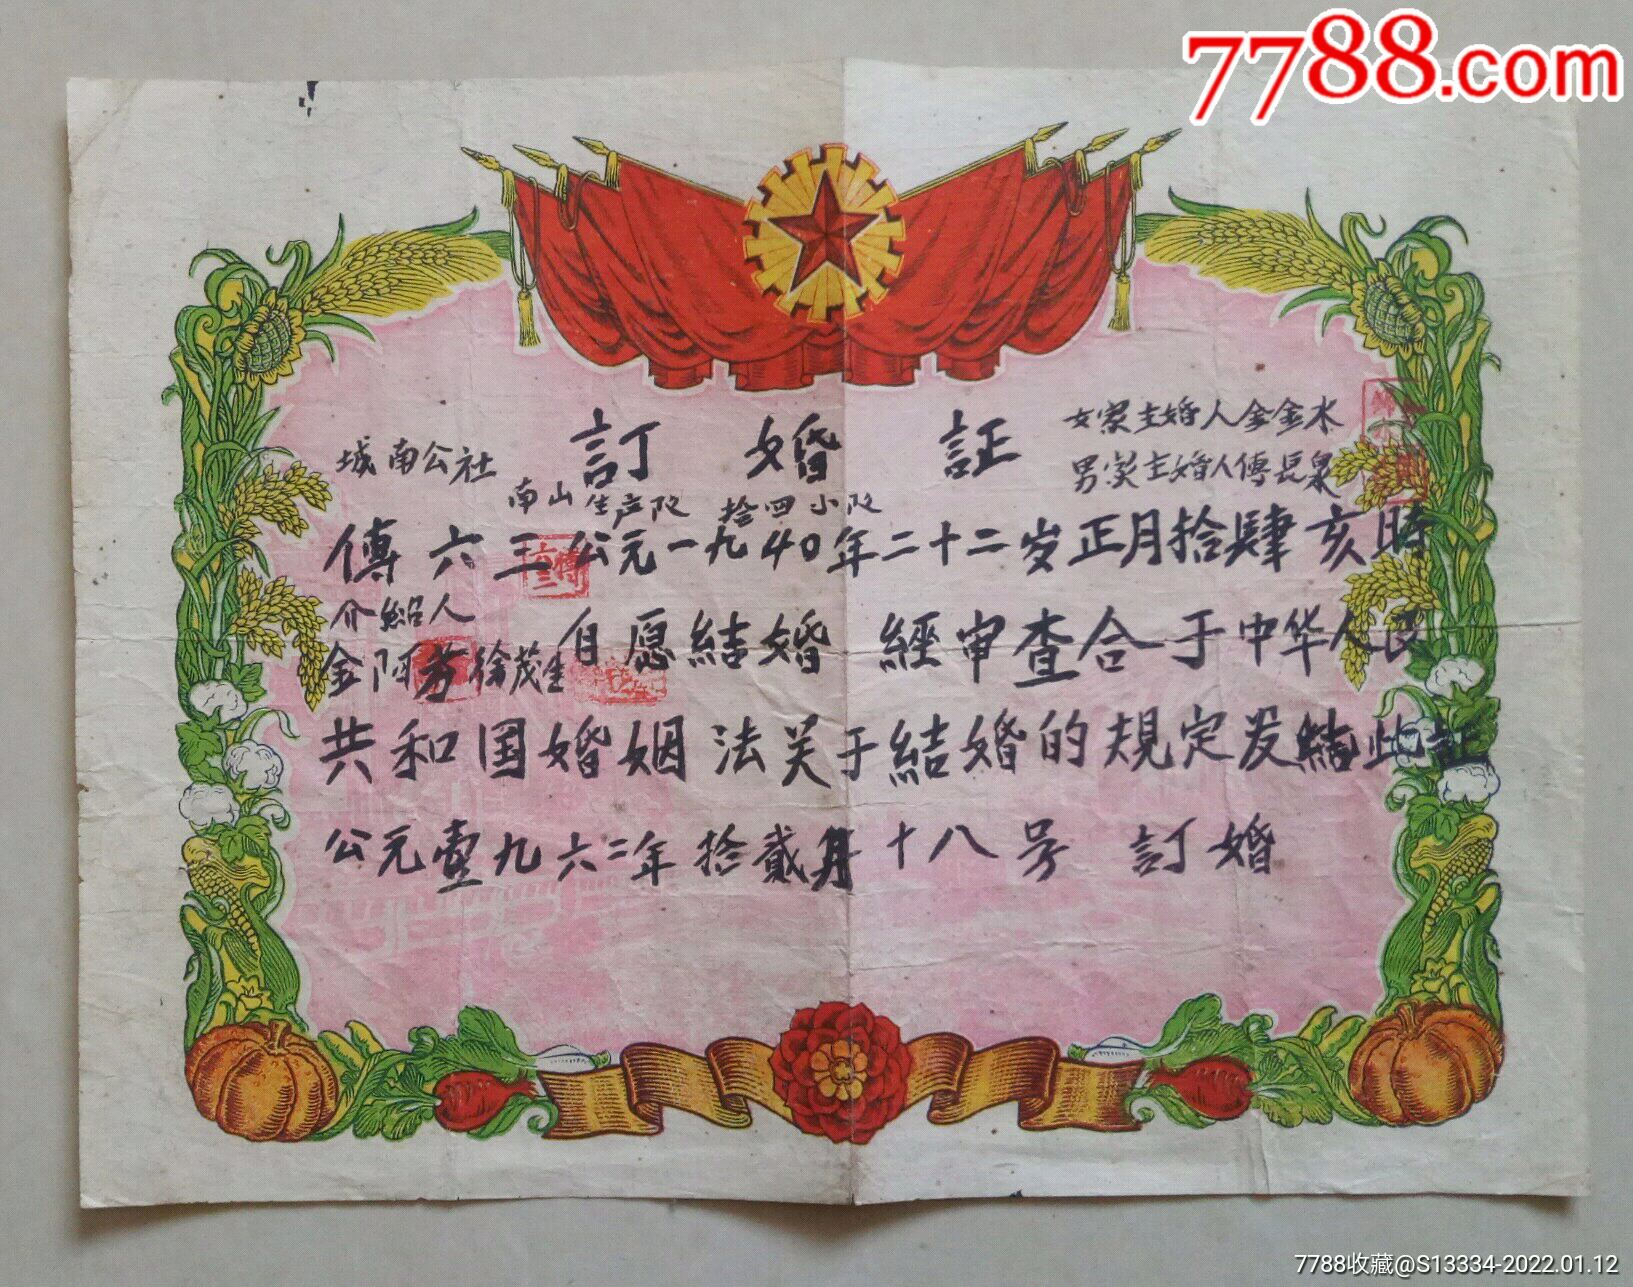 7788.com
訂婚証
女家主婚人金金水
男家主婚人傅長泉
城南公社
南山生产队 拾四小队
傅六三公元一九40年二十二岁正月拾肆亥時
介紹人
金阿芳徐茂生自愿結婚 經审查合于中华人民
共和国婚姻法关于結婚的規定发結此証
公元壹九六二年拾貳月十八号 訂婚
7788收藏@S13334-2022.01.12